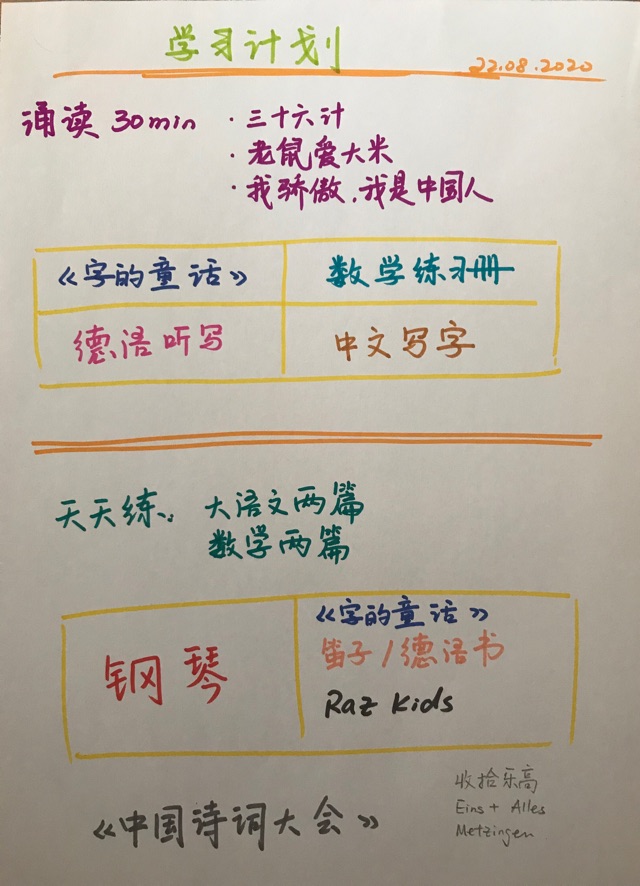 学习计划
22.08.2020
诵读 30min
· 三十六计
· 老鼠爱大米
· 我骄傲,我是中国人
《字的童话》
数学练习册
德语听写
中文写字
天天练: 大语文两篇
数学两篇
钢琴
《字的童话》
笛子/德语书
Raz Kids
《中国诗词大会》
收拾乐高
Eins + Alles
Metzingen